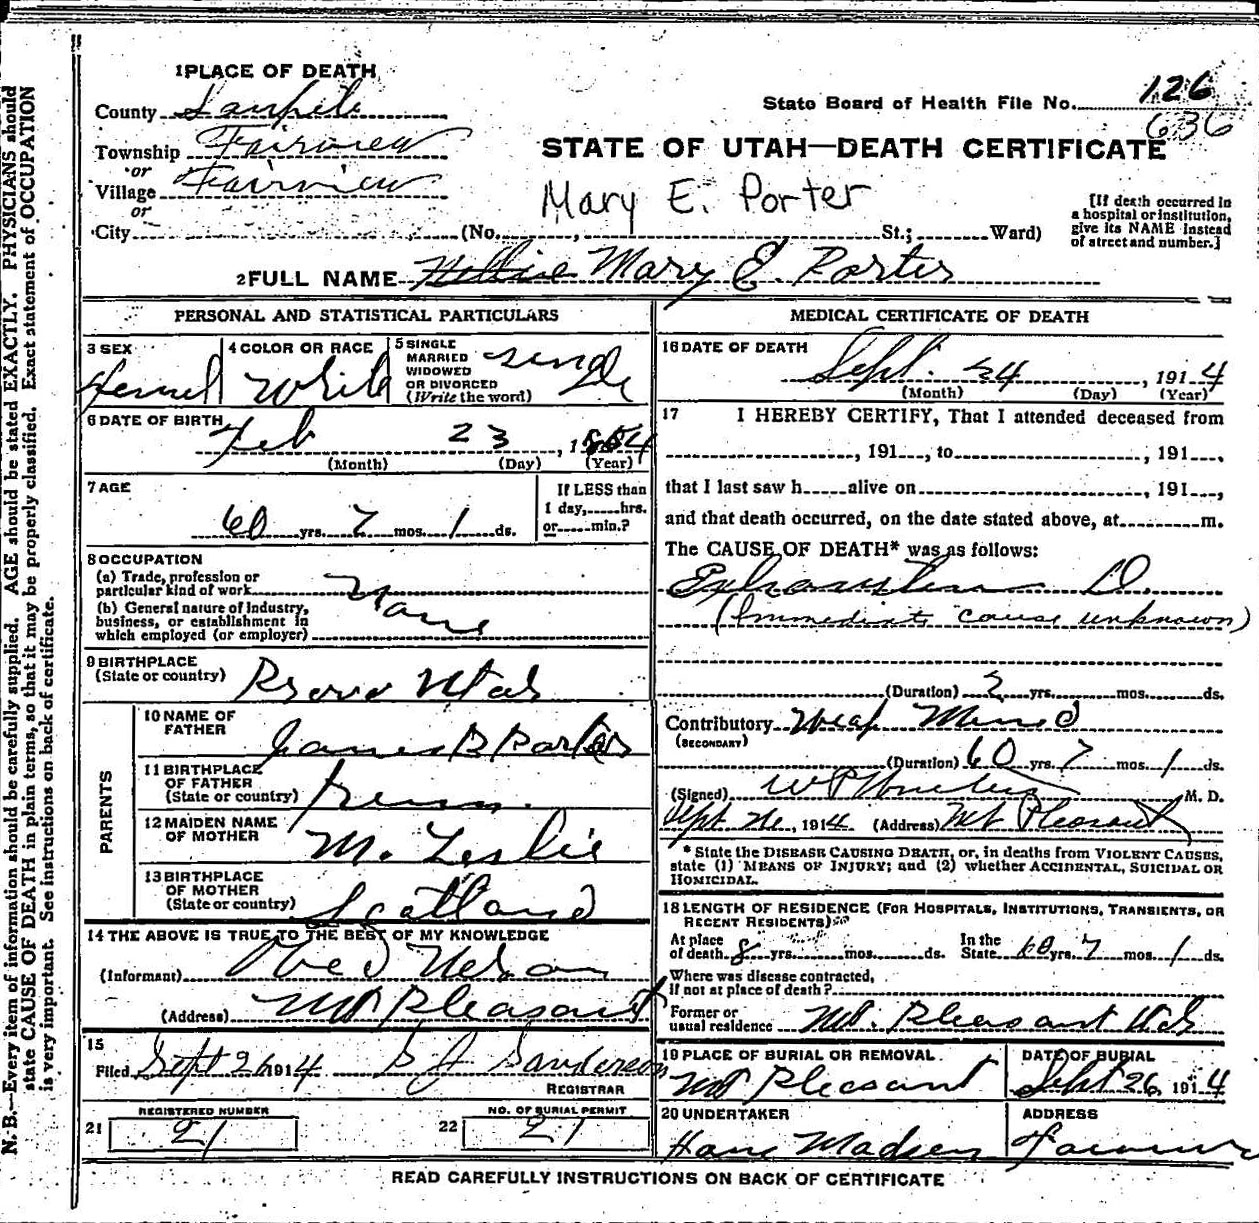 N. B.—Every item of information should be carefully supplied. AGE should be stated EXACTLY. PHYSICIANS should
state CAUSE OF DEATH in plain terms, so that it may be properly classified. Exact statement of OCCUPATION
is very important. See instructions on back of certificate.
1 PLACE OF DEATH
County Sanpete
Township Fairview
or
Village Fairview
or
City
State Board of Health File No. 126
636
STATE OF UTAH—DEATH CERTIFICATE
Mary E. Porter
(No. , St.; Ward)
[If death occurred in
a hospital or institution,
give its NAME instead
of street and number.]
2 FULL NAME Mary E. Porter
PERSONAL AND STATISTICAL PARTICULARS
3 SEX Femal
4 COLOR OR RACE White
5 SINGLE
MARRIED
WIDOWED
OR DIVORCED
(Write the word) Single
6 DATE OF BIRTH
Feb 23, 1854
(Month) (Day) (Year)
7 AGE
60 yrs. 7 mos. 1 ds.
If LESS than
1 day, hrs.
or min.?
8 OCCUPATION
(a) Trade, profession or
particular kind of work
(b) General nature of industry,
business, or establishment in
which employed (or employer)
None
9 BIRTHPLACE
(State or country) Provo Utah
PARENTS
10 NAME OF
FATHER James B Porter
11 BIRTHPLACE
OF FATHER
(State or country) Tenn.
12 MAIDEN NAME
OF MOTHER M. Leslie
13 BIRTHPLACE
OF MOTHER
(State or country) Scotland
14 THE ABOVE IS TRUE TO THE BEST OF MY KNOWLEDGE
(Informant) Nelson
(Address) Mt Pleasant
15
Filed Sept 26 1914 Sanderson
REGISTRAR
REGISTERED NUMBER
21 21
NO. OF BURIAL PERMIT
22 21
MEDICAL CERTIFICATE OF DEATH
16 DATE OF DEATH
Sept. 24, 1914
(Month) (Day) (Year)
17 I HEREBY CERTIFY, That I attended deceased from
, 191 , to , 191 ,
that I last saw h alive on , 191 ,
and that death occurred, on the date stated above, at m.
The CAUSE OF DEATH* was as follows:
Exhaustion D.
(Immediate cause unknown)
(Duration) 2 yrs. mos. ds.
Contributory Weak Mind
(SECONDARY)
(Duration) 60 yrs. 7 mos. 1 ds.
(Signed) M. D.
Sept 26, 1914 (Address) Mt Pleasant
* State the DISEASE CAUSING DEATH, or, in deaths from VIOLENT CAUSES,
state (1) MEANS OF INJURY; and (2) whether ACCIDENTAL, SUICIDAL OR
HOMICIDAL.
18 LENGTH OF RESIDENCE (FOR HOSPITALS, INSTITUTIONS, TRANSIENTS, OR
RECENT RESIDENTS)
At place
of death 8 yrs. mos. ds.
In the
State 60 yrs. 7 mos. 1 ds.
Where was disease contracted,
if not at place of death?
Former or
usual residence Mt. Pleasant Utah
19 PLACE OF BURIAL OR REMOVAL
Mt Pleasant
DATE OF BURIAL
Sept 26, 1914
20 UNDERTAKER
Hans Madsen
ADDRESS
READ CAREFULLY INSTRUCTIONS ON BACK OF CERTIFICATE